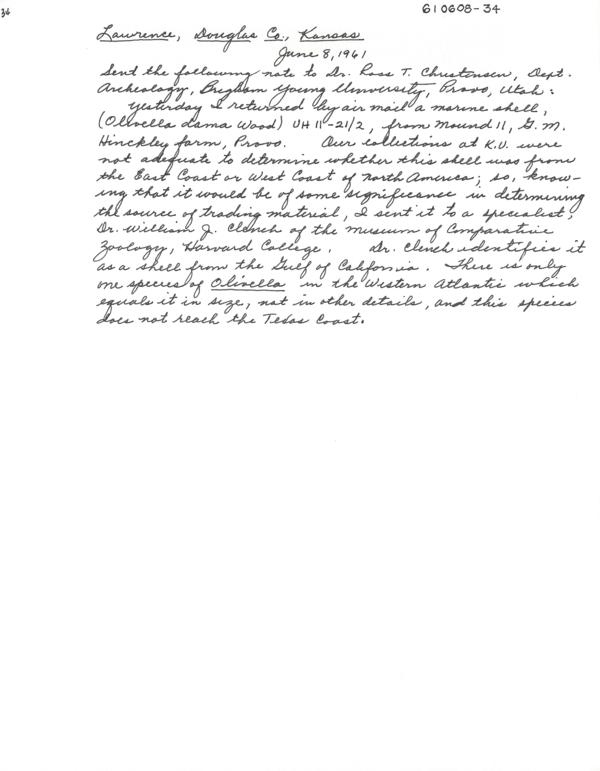 34
610608-34
Lawrence, Douglas Co., Kansas
June 8, 1961
Sent the following note to Dr. Ross T. Christensen, Dept.
Archeology, Brigham Young University, Provo, Utah:
Yesterday I returned by air mail a marine shell,
(Olivella dama Wood) UH 11-21/2, from Mound 11, G. M.
Hinckley farm, Provo. Our collections at K.U. were
not adequate to determine whether this shell was from
the East Coast or West Coast of North America; so, know-
ing that it would be of some significance in determining
the source of trading material, I sent it to a specialist,
Dr. William J. Clench of the Museum of Comparative
Zoology, Harvard College. Dr. Clench identifies it
as a shell from the Gulf of California. There is only
one species of Olivella in the Western Atlantic which
equals it in size, not in other details, and this species
does not reach the Texas Coast.